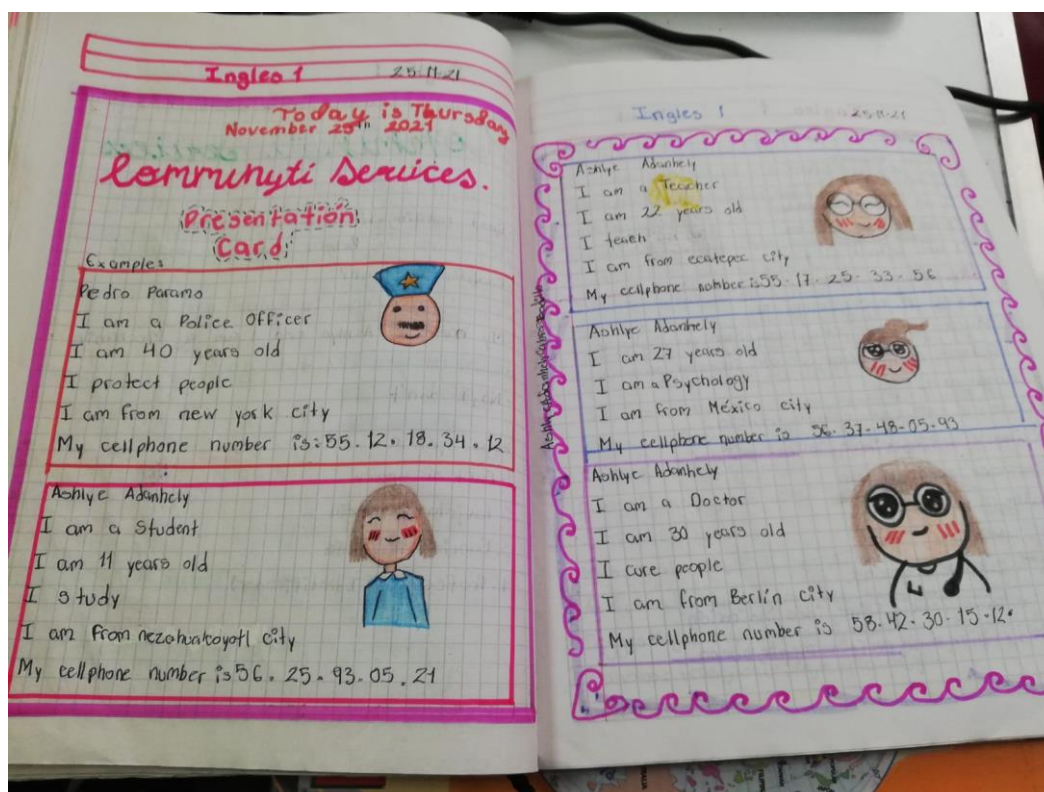 Ingles 1 25-11-21
Today is Thursday
November 25th 2021
Communyti Services.
Presentation
Card
Examples
Pedro Paramo
I am a Police Officer
I am 40 years old
I protect people
I am from new york city
My cellphone number is: 55. 12. 18. 34. 12
Ashlye Adanhely
I am a Student
I am 11 years old
I study
I am from nezahualcoyotl city
My cellphone number is 56. 25. 93. 05. 21
Ingles 1 25-11-21
Ashlye Adanhely
I am a Teacher
I am 22 years old
I teach
I am from ecatepec city
My cellphone nomber is 55-17-25-33-56
Ashlye Adanhely
I am 27 years old
I am a Psychology
I am from México city
My cellphone number is 56-37-48-05-93
Ashlye Adanhely
I am a Doctor
I am 30 years old
I cure people
I am from Berlín city
My cellphone number is 58-42-30-15-12.